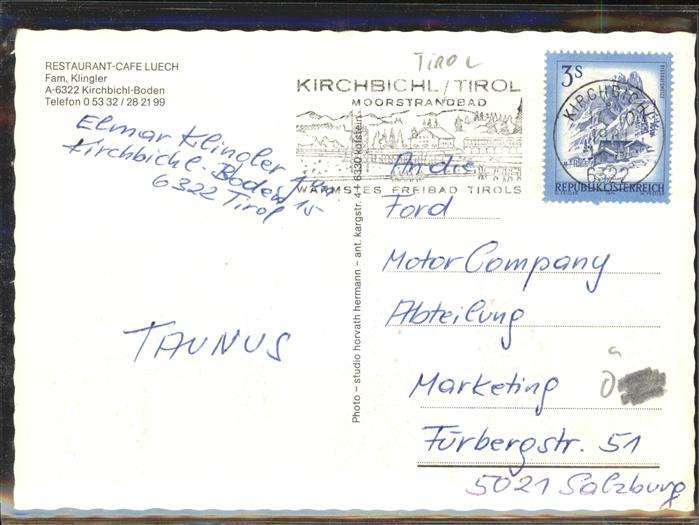 RESTAURANT-CAFE LUECH
Fam. Klingler
A-6322 Kirchbichl-Boden
Telefon 0 53 32 / 28 21 99
Elmar Klingler
Kirchbichl-Boden
15
6322 Tirol
TAUNUS
TIROL
KIRCHBICHL/TIROL
MOORSTRANDBAD
WÄRMSTES FREIBAD TIROLS
3S
KIRCHBICHL
6322
REPUBLIK ÖSTERREICH
Photo – studio horvath hermann – ant. kargstr. 4 + 6330 kufstein
An die
Ford
Motor Company
Abteilung
Marketing
Fürbergstr. 51
5021 Salzburg
Ö